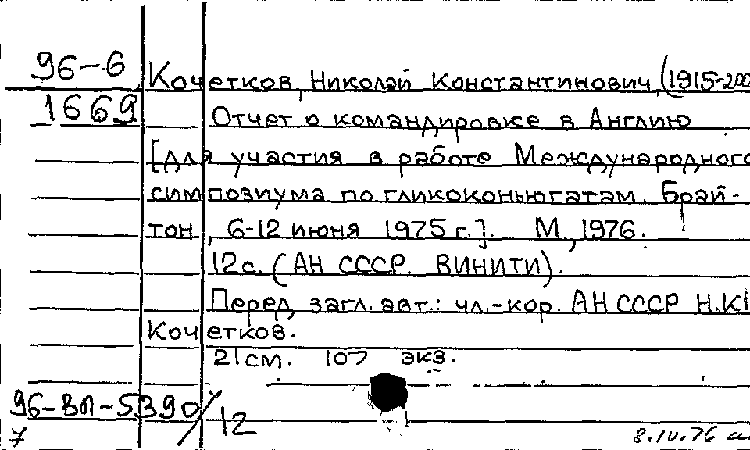 96-6
1669
Кочетков, Николай Константинович, (1915-200
Отчет о командировке в Англию
[для участия в работе Международного
симпозиума по гликоконьюгатам. Брай-
тон, 6-12 июня 1975 г.]. М., 1976.
12с. (АН СССР. ВИНИТИ).
Перед загл. авт.: чл.-кор. АН СССР Н.К.
Кочетков.
21см. 107 экз.
96-ВП-5390/12
7
8.IV.76